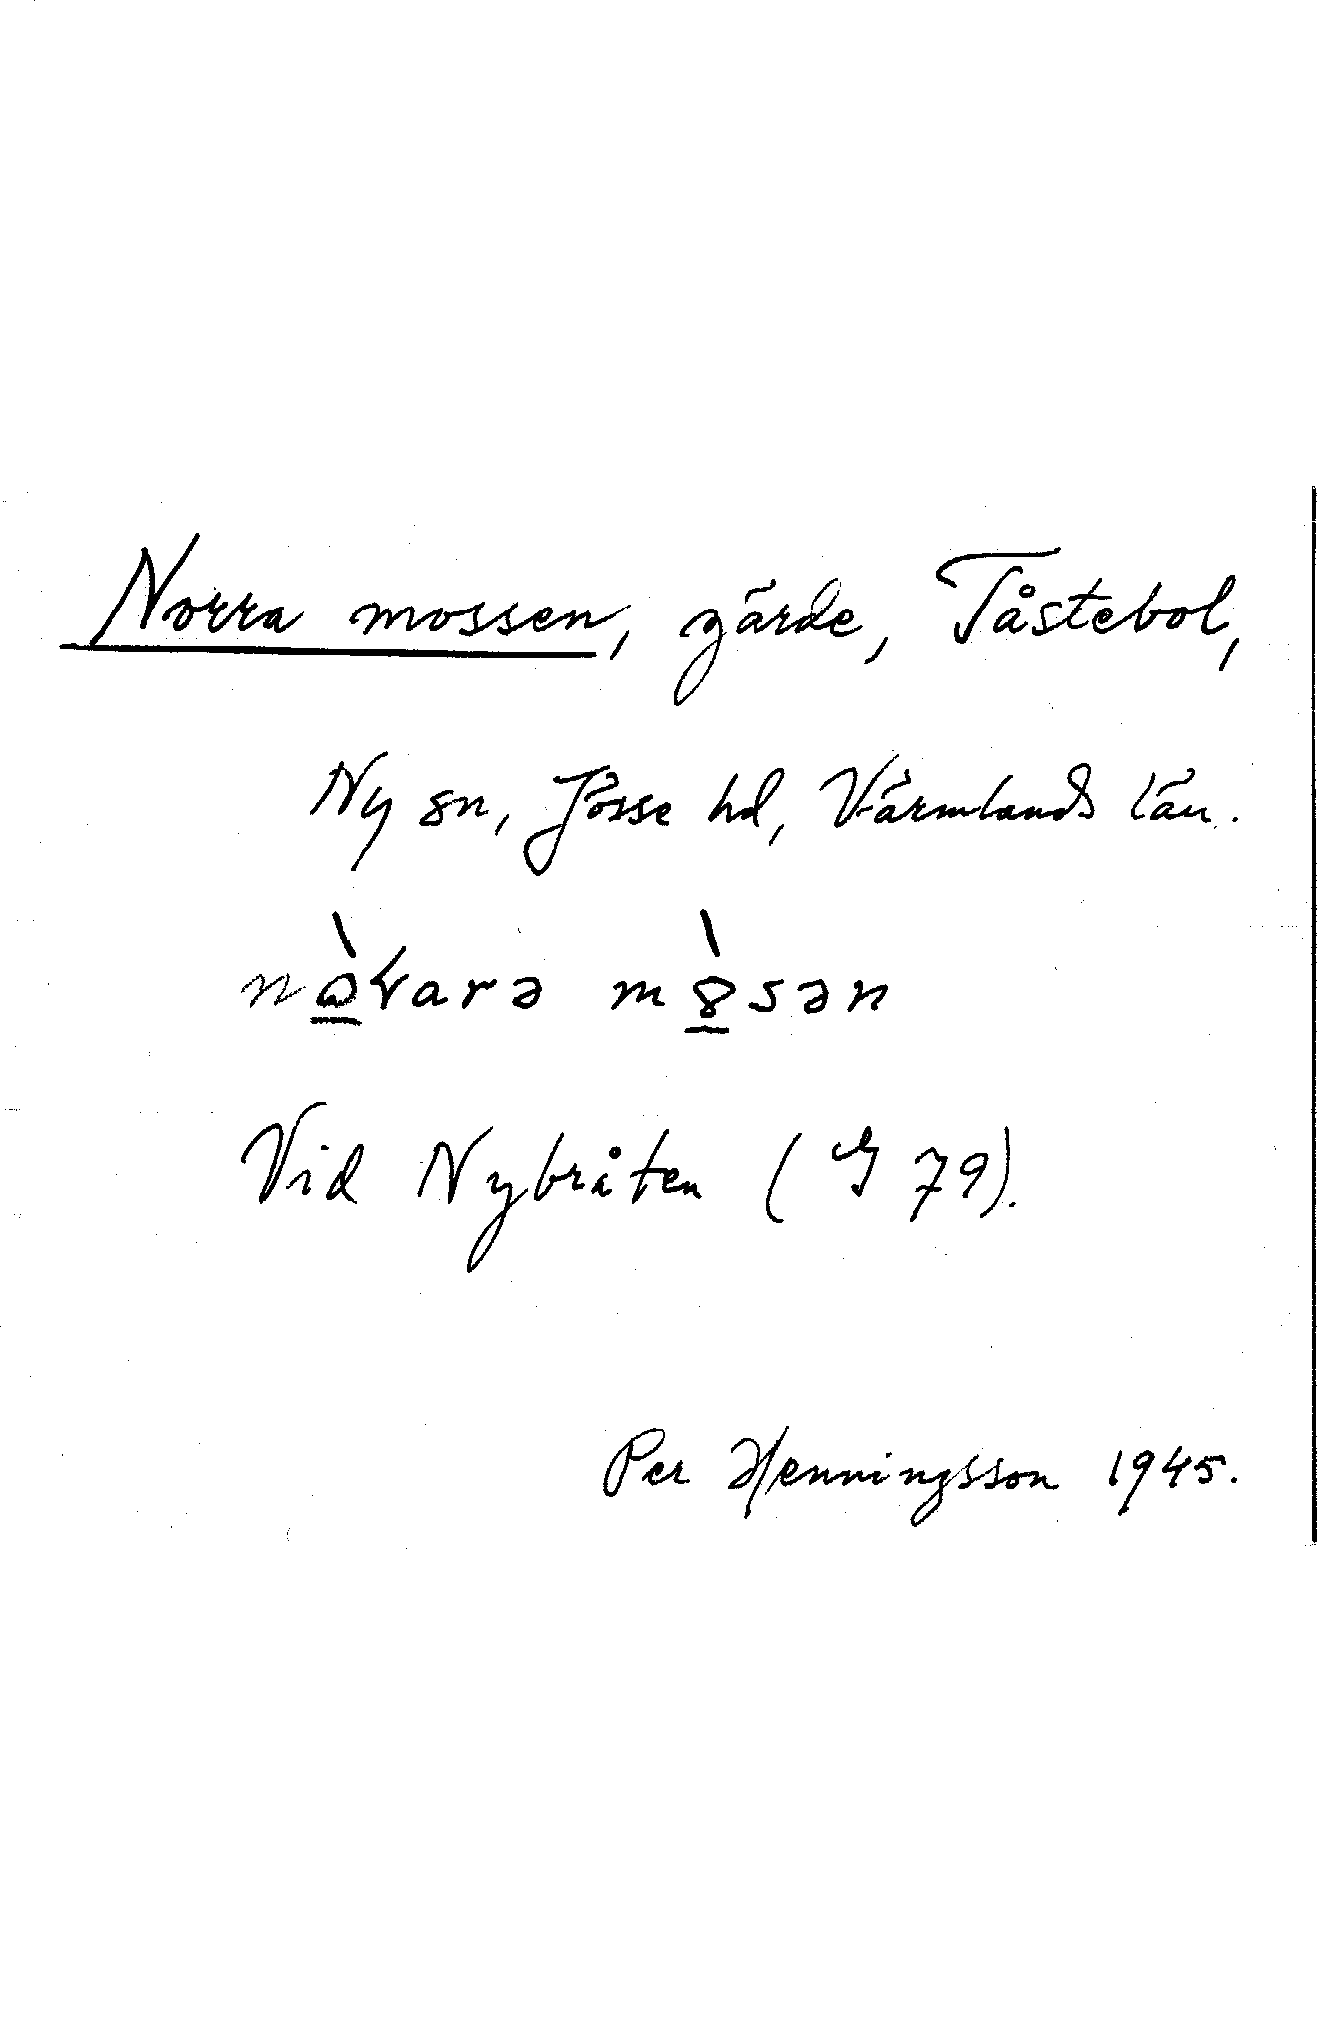 Norra mossen, gärde, Tåstebol,
Ny sn, Jösse hd, Värmlands län.
mossən
Vid Nybråten (G 79).
Per Henningsson 1945.